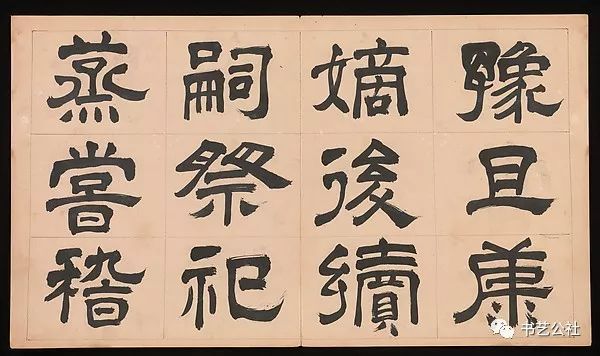 豫且康
嫡後續
嗣祭祀
蒸嘗稽
书艺公社